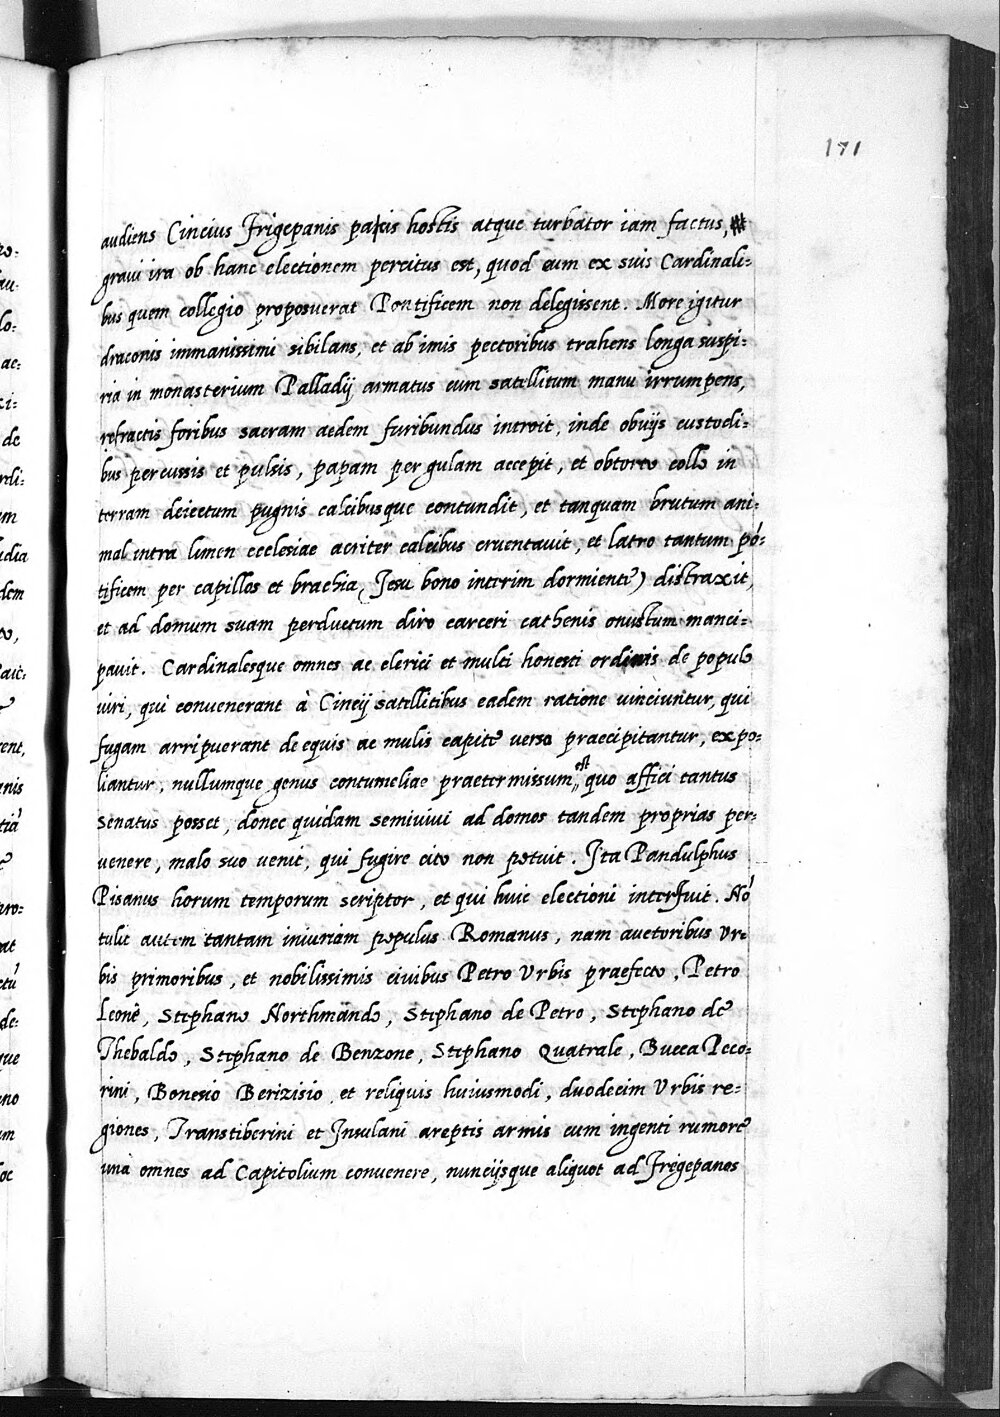 171
audiens Cincius Frigepanis pacis hostis atque turbator iam factus,
graui ira ob hanc electionem percitus est, quod eum ex suis Cardinale=
bus quem collegio proposuerat Pontificem non delegissent. More igitur
draconis immanissimi sibilans, et ab imis pectoribus trahens longa suspi=
ria in monasterium Palladij armatus cum satellitum manu irrumpens,
refractis foribus sacram aedem furibundus introit, inde obuijs custodi=
bus percussis et pulsis, papam per gulam accepit, et obtorto collo in
terram deiectum pugnis calcibusque contundit, et tanquam brutum ani=
mal intra limen ecclesiae acriter calcibus cruentauit, et latro tantum pō=
tificem per capillos et brachia (Jesu bono interim dormiente) distraxit,
et ad domum suam perductum diro carceri cathenis onustum manci=
pauit. Cardinalesque omnes ac clerici et multi honesti ordinis de populo
uiri, qui convenerant à Cincij satellitibus eadem ratione vinciuntur, qui
fugam arripuerant de equis ac mulis capite verso praecipitantur, expo=
liantur, nullumque genus contumeliae praetermissum est quo affici tantus
senatus posset, donec quidam semivivi ad domos tandem proprias per=
venere, malo suo venit, qui fugire cito non potuit. Ita Pandulphus
Pisanus horum temporum scriptor, et qui huic electioni interfuit. Nō
tulit autem tantam iniuriam populus Romanus, nam auctoribus Vr=
bis primoribus, et nobilissimis civibus Petro Vrbis praefecto, Petro
Leone, Stephano Northmando, Stephano de Petro, Stephano de
Thebaldo, Stephano de Benzone, Stephano Quatrale, Bucca Peco=
rini, Bonesio Berizisio et reliquis huiusmodi, duodecim Vrbis re=
giones, Transtiberini et Insulani areptis armis cum ingenti rumore
unà omnes ad Capitolium convenere, nuncijsque aliquot ad Frigepanos